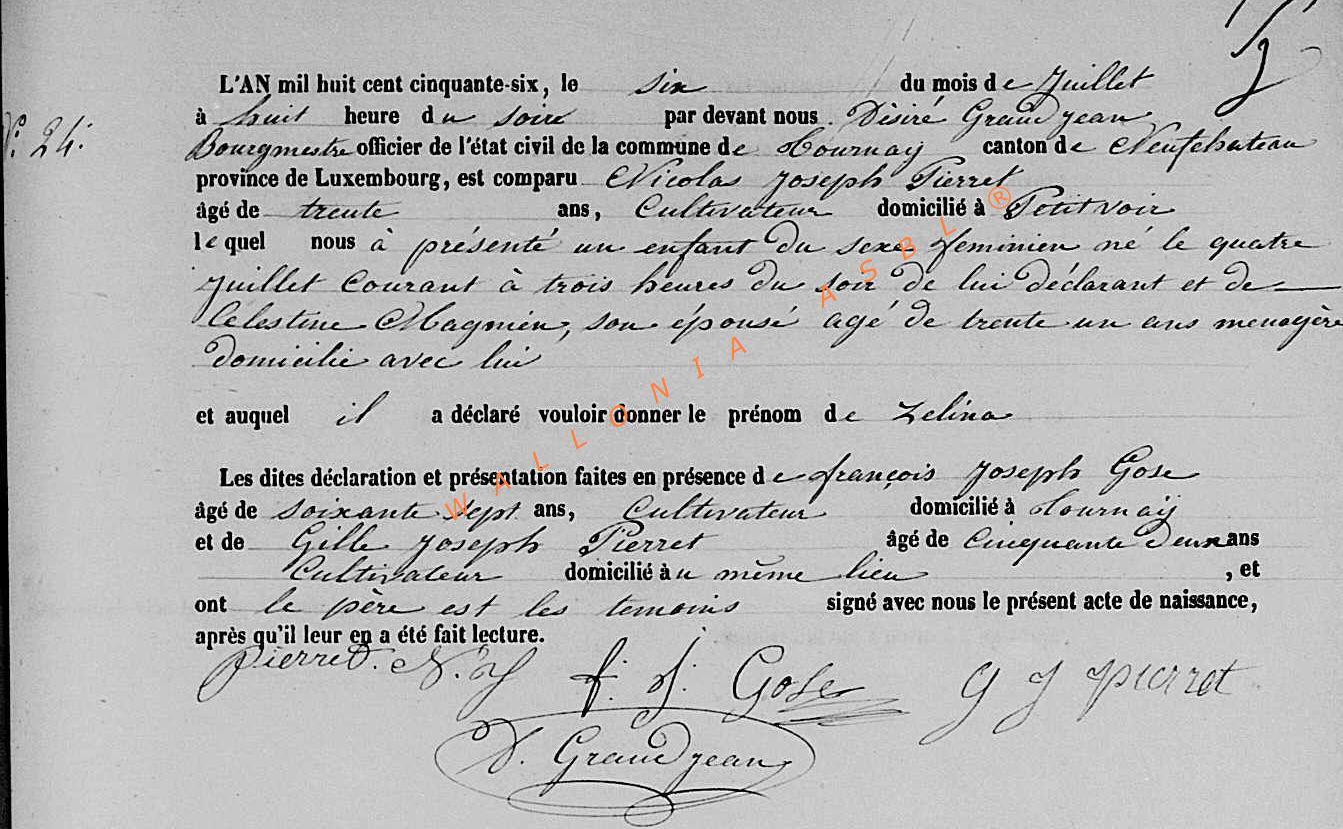 L'AN mil huit cent cinquante-six, le six du mois de Juillet
à huit heure du soir par devant nous Désiré Grandjean
N.° 24. Bourgmestre officier de l'état civil de la commune de Tournay canton de Neufchateau
province de Luxembourg, est comparu Nicolas Joseph Pierret
âgé de trente ans, Cultivateur domicilié à Petitvoir
lequel nous à présenté un enfant du sexe feminien né le quatre
Juillet Courant à trois heures du soir de lui déclarant et de
Célestine Magnien, son épousé agé de trente un ans menagère
domicilie avec lui
et auquel il a déclaré vouloir donner le prénom de Zelina
Les dites déclaration et présentation faites en présence de françois Joseph Gose
âgé de soixante sept ans, Cultivateur domicilié à Tournay
et de Gille Joseph Pierret âgé de Cinquante deux ans
Cultivateur domicilié au même lieu , et
ont le père est les temoins signé avec nous le présent acte de naissance,
après qu'il leur en a été fait lecture.
pierret. N. J f. J. Gose G J pierret
D. Grandjean
WALLONIA ASBL ®